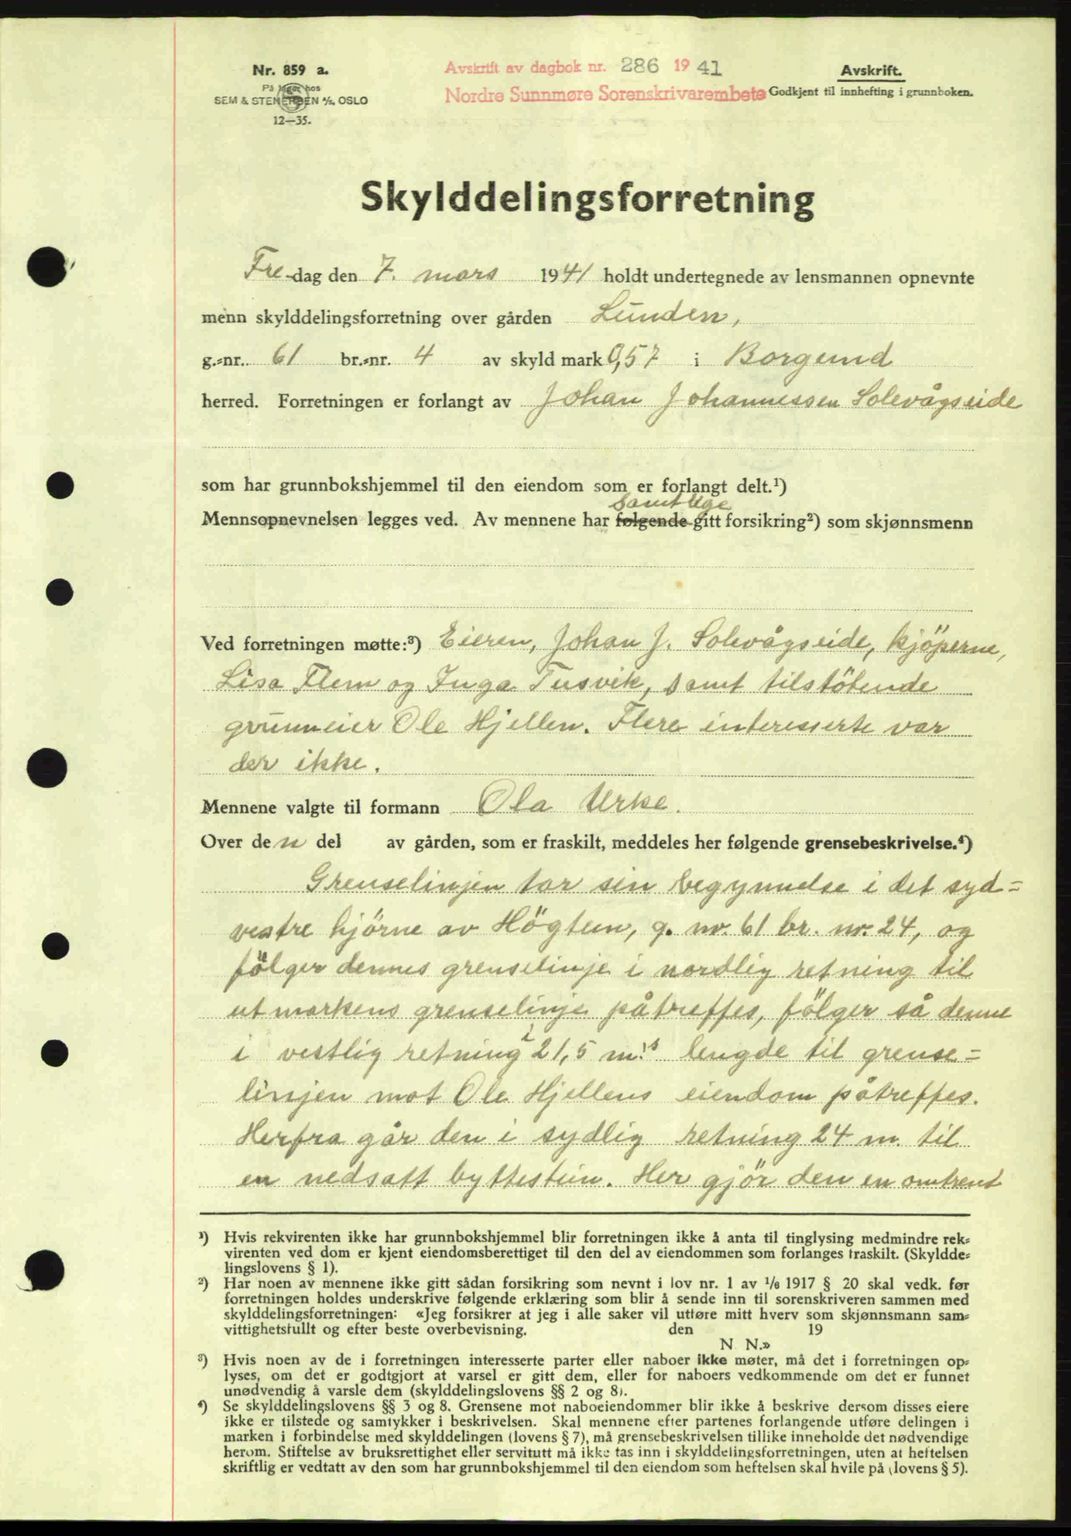 Nr. 859 a.
På lager hos
SEM & STENERSEN A/S, OSLO
12—35.
Avskrift av dagbok nr. 286 1941
Nordre Sunnmøre Sorenskrivarembete
Avskrift.
Godkjent til innhefting i grunnboken.
Skylddelingsforretning
Fre-dag den 7. mars 1941 holdt undertegnede av lensmannen opnevnte
menn skylddelingsforretning over gården Lunden,
g.-nr. 61 br.-nr. 4 av skyld mark 0,57 i Borgund
herred. Forretningen er forlangt av Johan Johannessen Solevågseide
som har grunnbokshjemmel til den eiendom som er forlangt delt.¹)
samtlige
Mennsopnevnelsen legges ved. Av mennene har følgende gitt forsikring²) som skjønnsmenn
Ved forretningen møtte:³) Eieren, Johan J. Solevågseide, kjöperne,
Lisa Flem og Inga Tusvik, samt tilstötende
grunneier Ole Hjellen. Flere interesserte var
der ikke.
Mennene valgte til formann Ola Urke.
Over den del av gården, som er fraskilt, meddeles her følgende grensebeskrivelse.⁴)
Grenselinjen tar sin begynnelse i det syd-
vestre hjörne av Högtun, g. nr. 61 br. nr. 24, og
fölger dennes grenselinje i nordlig retning til
utmarkens grenselinje påtreffes, fölger så denne
i vestlig retning i 21,5 m's lengde til grense-
linjen mot Ole Hjellens eiendom påtreffes.
Herfra går den i sydlig retning 24 m. til
en nedsatt byttestein. Her gjör den en omtrent
¹) Hvis rekvirenten ikke har grunnbokshjemmel blir forretningen ikke å anta til tinglysing medmindre rek-
virenten ved dom er kjent eiendomsberettiget til den del av eiendommen som forlanges fraskilt. (Skyldde-
lingslovens § 1).
²) Har noen av mennene ikke gitt sådan forsikring som nevnt i lov nr. 1 av 1/6 1917 § 20 skal vedk. før
forretningen holdes underskrive følgende erklæring som blir å sende inn til sorenskriveren sammen med
skylddelingsforretningen: «Jeg forsikrer at jeg i alle saker vil utføre mitt hverv som skjønnsmann sam-
vittighetsfullt og efter beste overbevisning. den 19
N N.»
³) Hvis noen av de i forretningen interesserte parter eller naboer ikke møter, må det i forretningen op-
lyses, om det er godtgjort at varsel er gitt dem, eller for naboers vedkommende om det er funnet
unødvendig å varsle dem (skylddelingslovens §§ 2 og 8).
⁴) Se skylddelingslovens §§ 3 og 8. Grensene mot naboeiendommer blir ikke å beskrive dersom disses eiere
ikke er tilstede og samtykker i beskrivelsen. Skal mennene efter partenes forlangende utføre delingen i
marken i forbindelse med skylddelingen (lovens § 7), må grensebeskrivelsen tillike inneholde det nødvendige
herom. Stiftelse av bruksrettighet eller servitutt må ikke tas inn i skylddelingsforretningen, uten at heftelsen
skriftlig er vedtatt av den som har grunnbokshjemmel til den eiendom som heftelsen skal hvile på (lovens § 5).